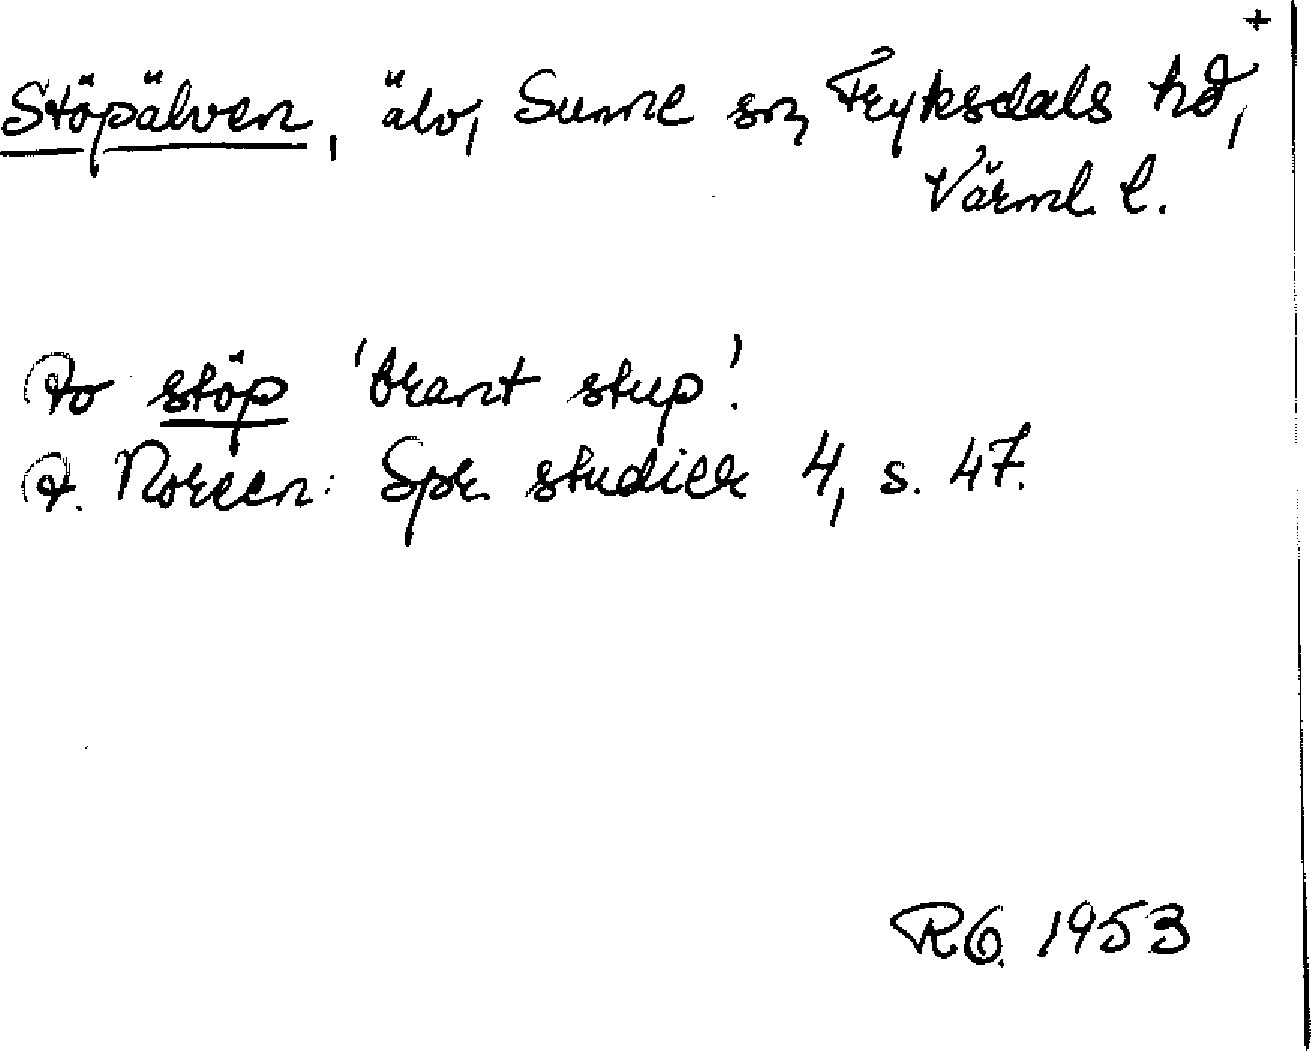 +
Stöpälven, älv, Sunne sn, Fryksdals hd,
Värml. l.
Av stöp 'brant stup'.
A. Noreen: Spr. studier 4, s. 47.
RG. 1953